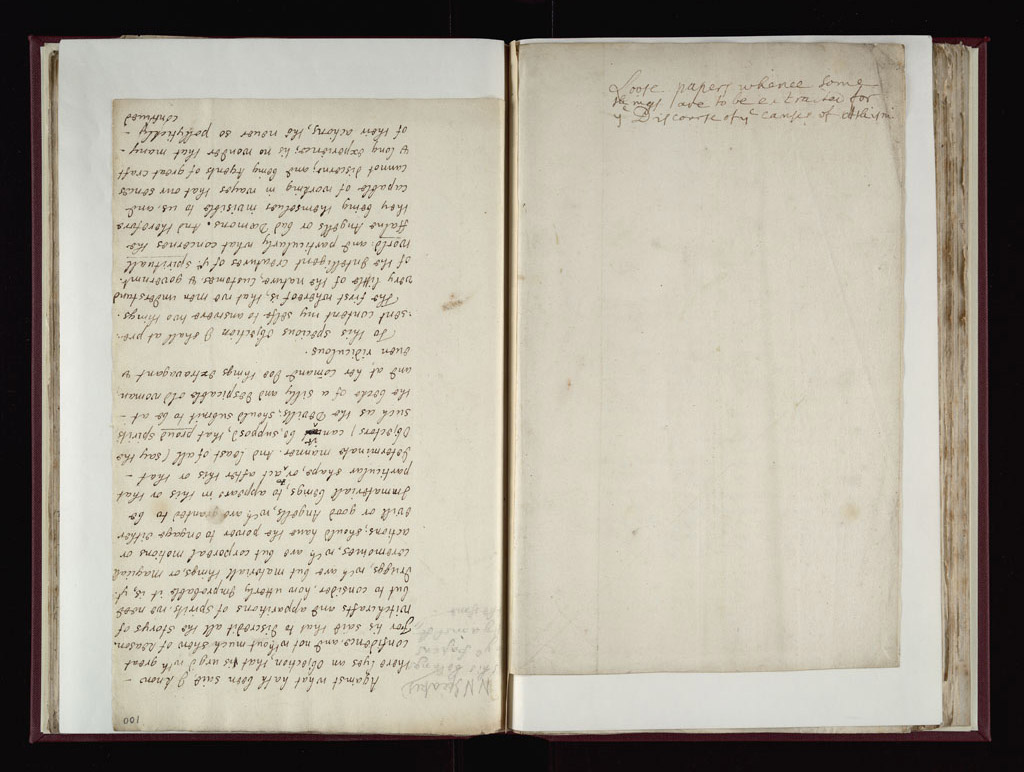 100
Against what hath been said I know -
there lyes an Objection, that is urg'd wth great
confidence and not without much show of reason.
For tis said that to discredit all the storys of
Witchcrafts and apparitions of spirits, we need
but to consider, how utterly Improbable it is, yt
Druggs, wch are but materiall things, or magicall
ceremonies, wch are but corporeal motions or
actions; should have the power to engage either
Evill or good Angells, wch are granted to be
Immateriall beings, to appeare in this or that
particular shape, or to act after this or that -
determinate manner. And least of all (say the
Objectors) can it be suppos'd, that proud spirits
such as the Devills, should submit to be at -
the becke of a silly and despicable old woman
and at her comand doe things extravagant &
even ridiculous.
To this specious Objection I shall at pre-
sent content my selfe to answere two things.
The first whereof is, that we men understand
very little of the nature, customes & government.
of the Intelligent creatures of ye spirituall
World: and particularly what concernes the
ffalne Angells or bad Dæmons. And therefore
they being themselves invisible to us, and
capable of working in wayes that our sences
cannot discerne; and being Agents of great craft
& long experience; tis no wonder that many -
of their actions, tho never so pollitickly -
contrived
Loose papers whence some
things are to be extracted for
ye Discourse of ye causes of Atheism